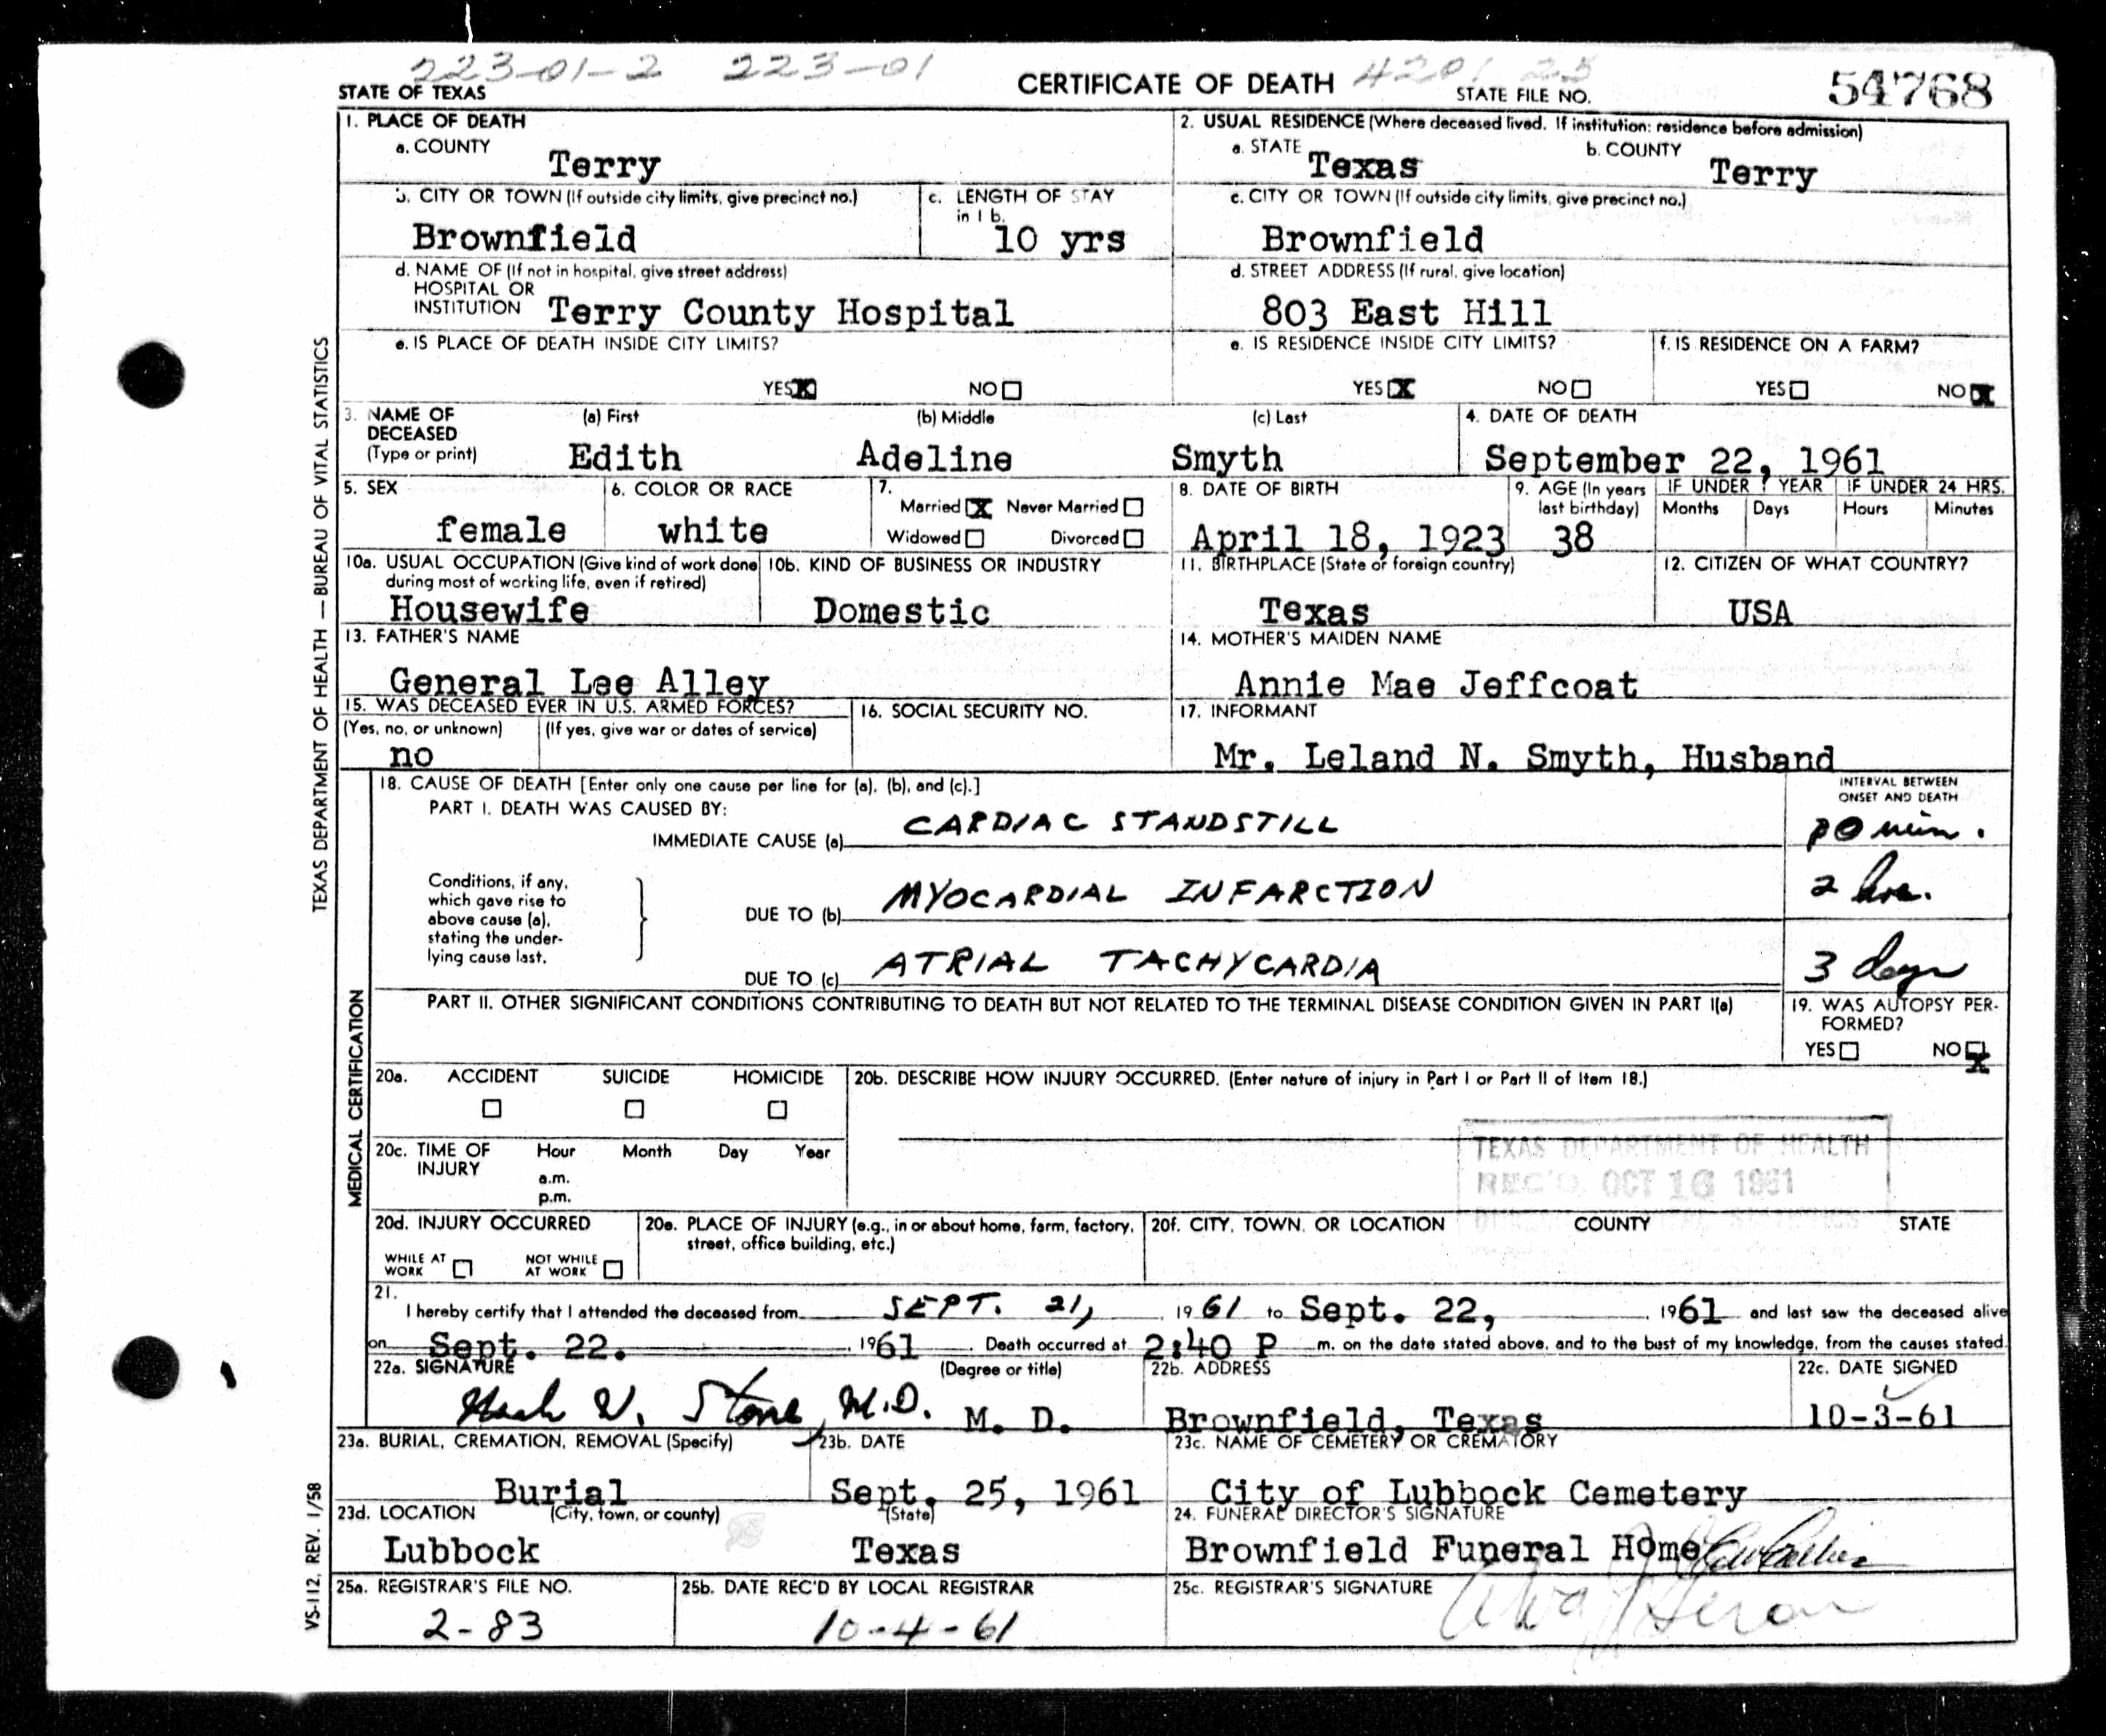 223-01-2 223-01
STATE OF TEXAS
CERTIFICATE OF DEATH 4201 25
STATE FILE NO. 54768
1. PLACE OF DEATH
a. COUNTY Terry
2. USUAL RESIDENCE (Where deceased lived. If institution: residence before admission)
a. STATE Texas b. COUNTY Terry
b. CITY OR TOWN (If outside city limits, give precinct no.) Brownfield
c. LENGTH OF STAY in 1 b. 10 yrs
c. CITY OR TOWN (If outside city limits, give precinct no.) Brownfield
d. NAME OF (If not in hospital, give street address)
HOSPITAL OR
INSTITUTION Terry County Hospital
d. STREET ADDRESS (If rural, give location)
803 East Hill
e. IS PLACE OF DEATH INSIDE CITY LIMITS?
YES X NO
e. IS RESIDENCE INSIDE CITY LIMITS?
YES X NO
f. IS RESIDENCE ON A FARM?
YES NO X
3. NAME OF DECEASED (Type or print)
(a) First (b) Middle (c) Last
Edith Adeline Smyth
4. DATE OF DEATH
September 22, 1961
5. SEX
female
6. COLOR OR RACE
white
7.
Married X Never Married
Widowed Divorced
8. DATE OF BIRTH
April 18, 1923
9. AGE (In years last birthday)
38
IF UNDER 1 YEAR
Months Days
IF UNDER 24 HRS.
Hours Minutes
10a. USUAL OCCUPATION (Give kind of work done
during most of working life, even if retired)
Housewife
10b. KIND OF BUSINESS OR INDUSTRY
Domestic
11. BIRTHPLACE (State or foreign country)
Texas
12. CITIZEN OF WHAT COUNTRY?
USA
13. FATHER'S NAME
General Lee Alley
14. MOTHER'S MAIDEN NAME
Annie Mae Jeffcoat
15. WAS DECEASED EVER IN U.S. ARMED FORCES?
(Yes, no, or unknown) (If yes, give war or dates of service)
no
16. SOCIAL SECURITY NO.
17. INFORMANT
Mr. Leland N. Smyth, Husband
18. CAUSE OF DEATH [Enter only one cause per line for (a), (b), and (c).]
INTERVAL BETWEEN
ONSET AND DEATH
PART I. DEATH WAS CAUSED BY:
IMMEDIATE CAUSE (a) CARDIAC STANDSTILL min.
Conditions, if any,
which gave rise to
above cause (a),
stating the under-
lying cause last.
DUE TO (b) MYOCARDIAL INFARCTION 2 hrs.
DUE TO (c) ATRIAL TACHYCARDIA 3 days
PART II. OTHER SIGNIFICANT CONDITIONS CONTRIBUTING TO DEATH BUT NOT RELATED TO THE TERMINAL DISEASE CONDITION GIVEN IN PART I(a)
19. WAS AUTOPSY PER-
FORMED?
YES NO X
20a. ACCIDENT SUICIDE HOMICIDE
20b. DESCRIBE HOW INJURY OCCURRED. (Enter nature of injury in Part I or Part II of Item 18.)
20c. TIME OF INJURY
Hour Month Day Year
a.m.
p.m.
TEXAS DEPARTMENT OF HEALTH
REC'D OCT 16 1961
BUREAU OF VITAL STATISTICS
20d. INJURY OCCURRED
WHILE AT WORK NOT WHILE AT WORK
20e. PLACE OF INJURY (e.g., in or about home, farm, factory,
street, office building, etc.)
20f. CITY, TOWN, OR LOCATION COUNTY STATE
21.
I hereby certify that I attended the deceased from SEPT. 21, 1961 to Sept. 22, 1961 and last saw the deceased alive
on Sept. 22. 1961. Death occurred at 2:40 P m. on the date stated above, and to the best of my knowledge, from the causes stated.
22a. SIGNATURE (Degree or title)
Stone, M.D. M. D.
22b. ADDRESS
Brownfield, Texas
22c. DATE SIGNED
10-3-61
23a. BURIAL, CREMATION, REMOVAL (Specify)
Burial
23b. DATE
Sept. 25, 1961
23c. NAME OF CEMETERY OR CREMATORY
City of Lubbock Cemetery
23d. LOCATION (City, town, or county) (State)
Lubbock Texas
24. FUNERAL DIRECTOR'S SIGNATURE
Brownfield Funeral Home
25a. REGISTRAR'S FILE NO.
2-83
25b. DATE REC'D BY LOCAL REGISTRAR
10-4-61
25c. REGISTRAR'S SIGNATURE
TEXAS DEPARTMENT OF HEALTH — BUREAU OF VITAL STATISTICS
MEDICAL CERTIFICATION
VS-112, REV. 1/58